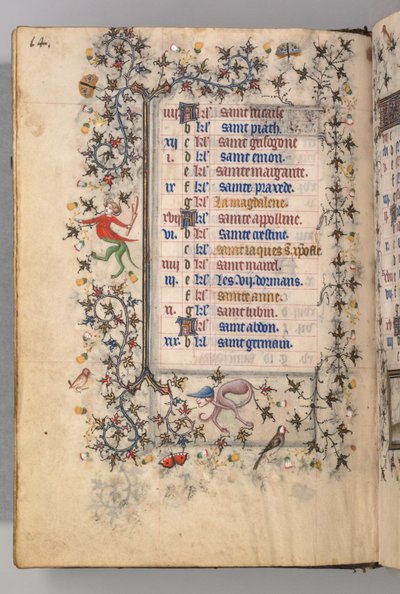 64.
iiij A kl' saint nicaise
b kl' saint piath.
xij c kl' saint grisogone
i. d kl' saint emon.
e kl' sainte margarite.
ix f kl' sainte praxede.
g kl' La magdalene.
xvij A kl' sainte apolline.
vi. b kl' sainte cristine.
c kl' saint iaques
xiiij d kl' saint marcel.
iii. e kl' Les .vij. dormans.
f kl' sainte anne.
xi. g kl' saint
A kl' saint abdon.
xix. b kl' saint germain.